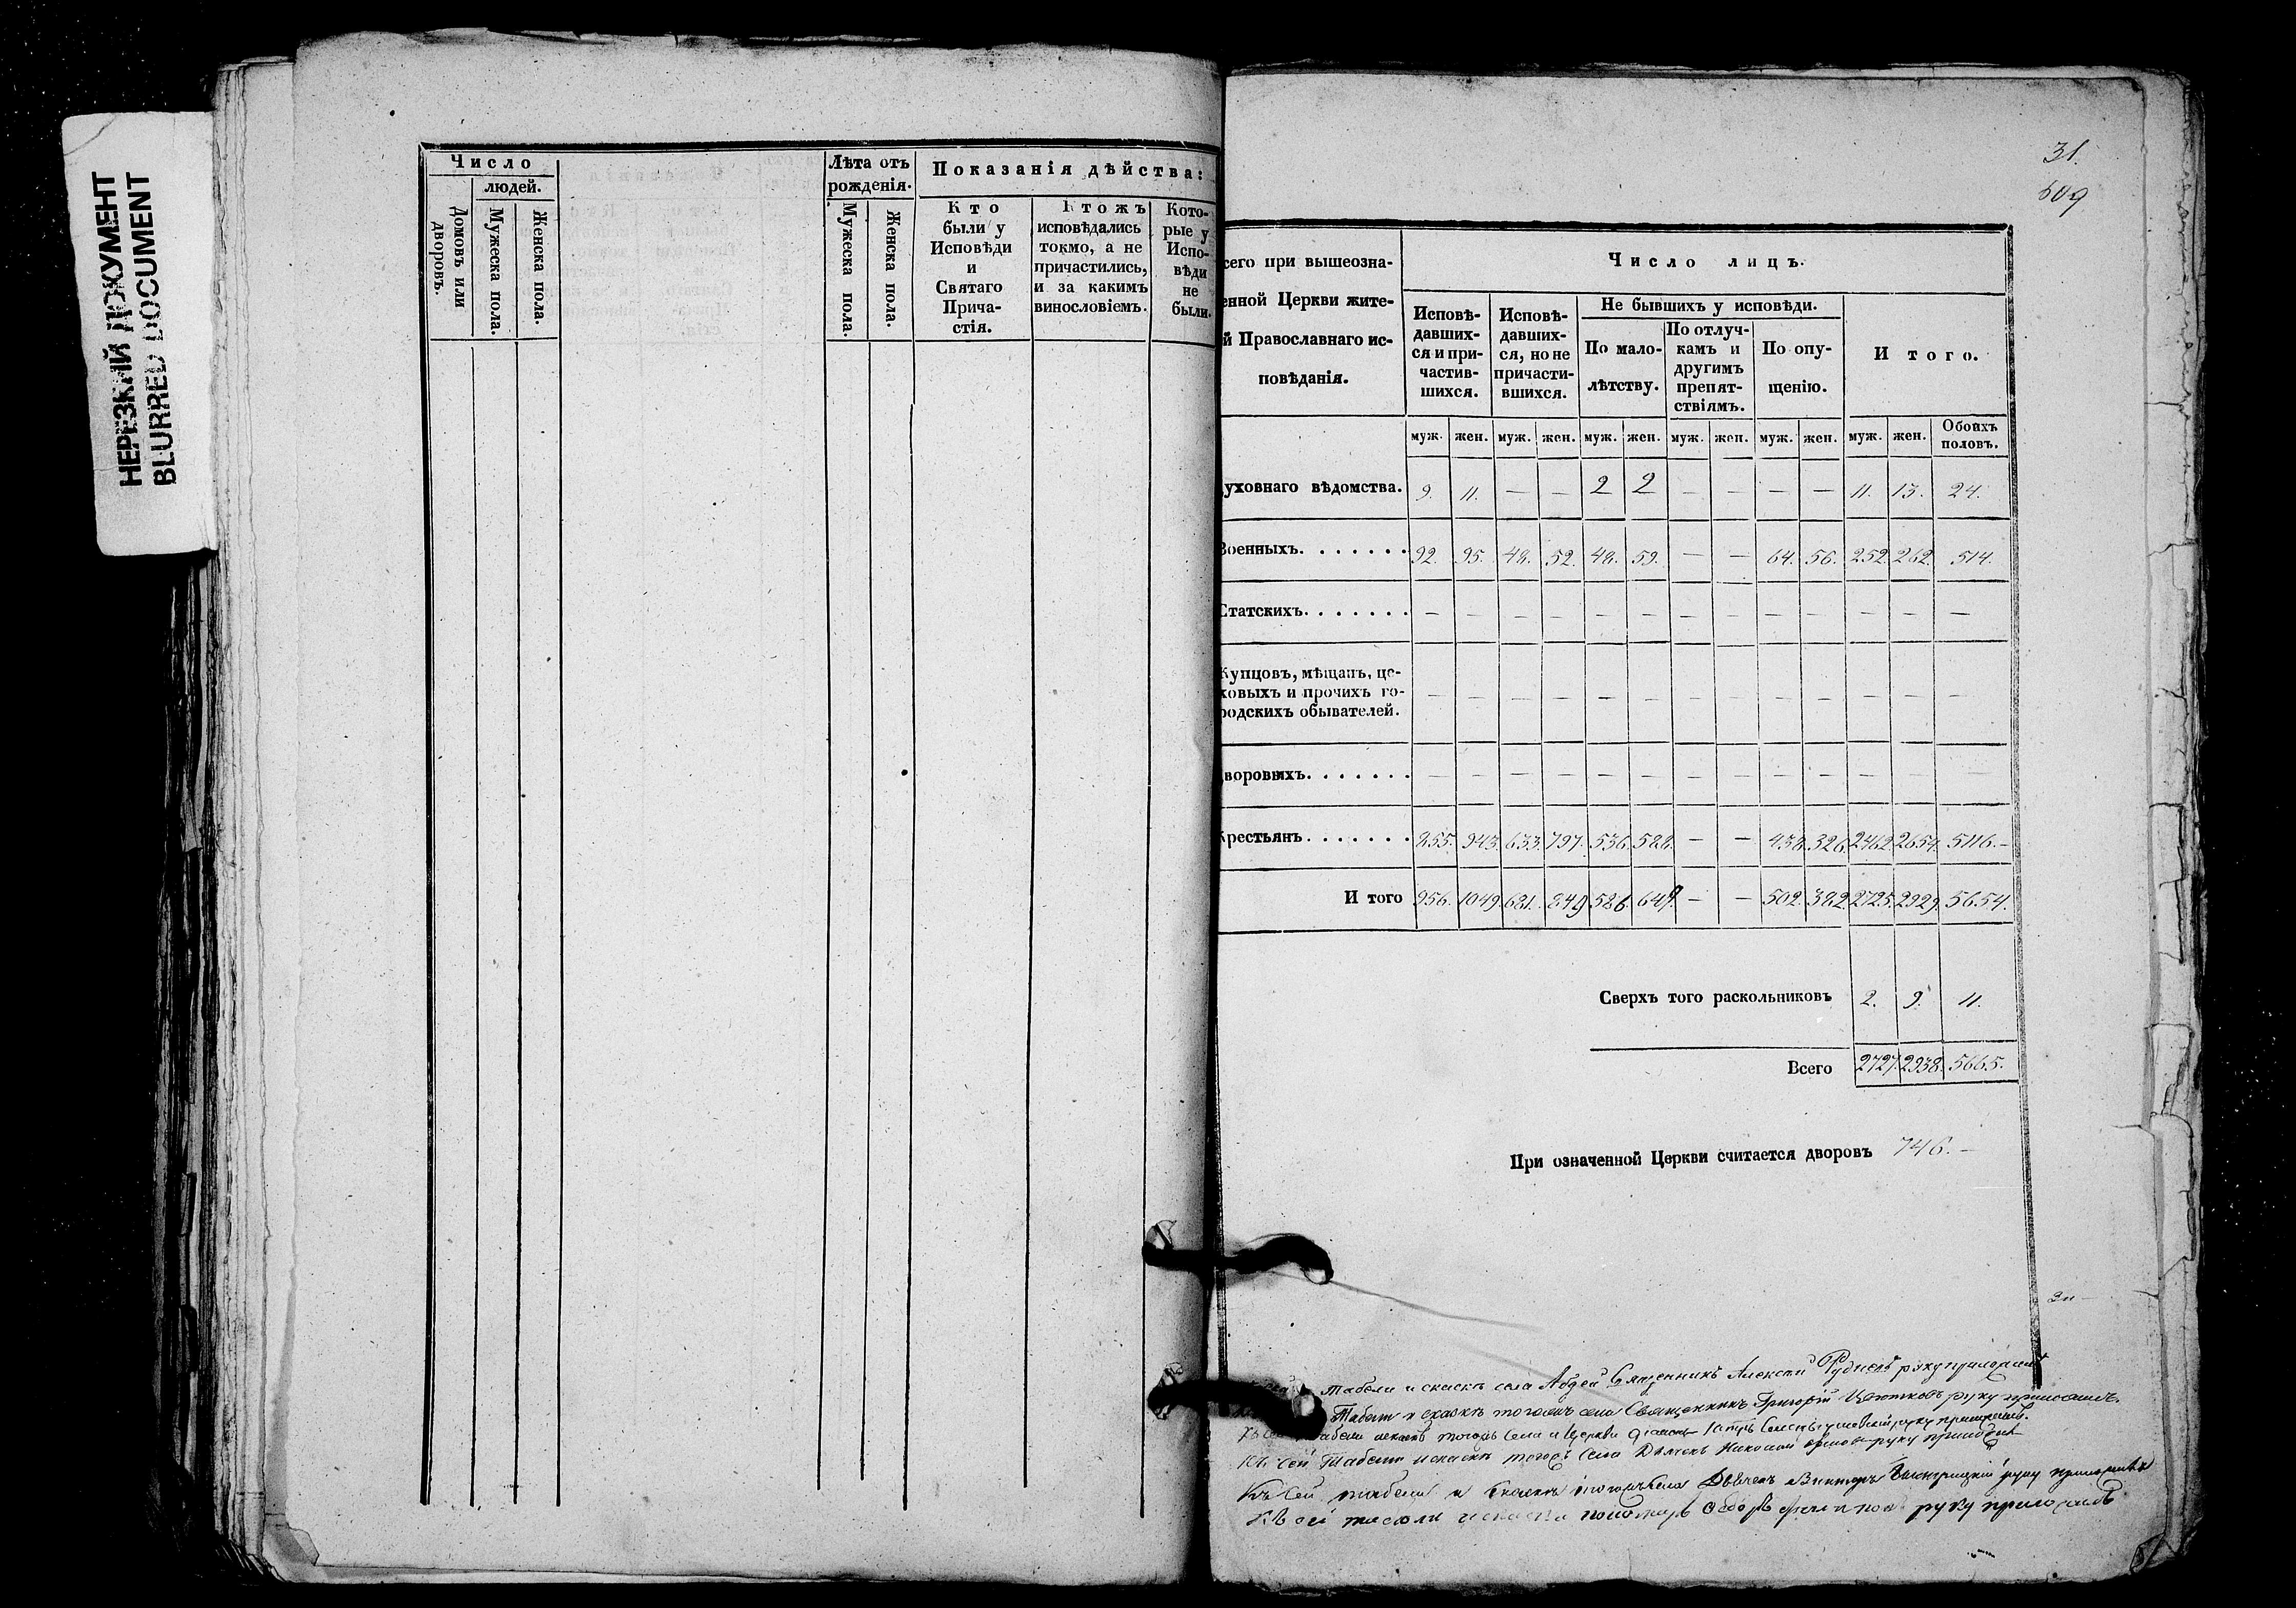 НЕРЕЗКИЙ ДОКУМЕНТ
BLURRED DOCUMENT
Число
людей.
Домовъ или дворовъ.
Мужеска пола.
Женска пола.
Лѣта отъ
рожденія.
Мужеска пола.
Женска пола.
Показанія дѣйства:
Кто
были у
Исповѣди
и
Святаго
Прича-
стія.
Ктожъ
исповѣдались
токмо, а не
причастились,
и за какимъ
винословіемъ.
Кото-
рые у
Испо-
вѣди
не
были.
31.
609
сего при вышеозна-
енной Церкви жите-
й Православнаго ис-
повѣданія.
Число лицъ.
Исповѣ-
давших-
ся и при-
частив-
шихся.
Исповѣ-
давших-
ся, но не
причасти-
вшихся.
Не бывшихъ у исповѣди.
По мало-
лѣтству.
По отлуч-
камъ и
другимъ
препят-
ствіямъ.
По опу-
щенію.
И того.
муж. жен. муж. жен. муж. жен. муж. жен. муж. жен. муж. жен. Обоихъ половъ.
уховнаго вѣдомства. 9. 11. — — 2 2 — — — — 11. 13. 24.
Военныхъ. . . . . . . 92. 95. 48. 52. 48. 59. — — 64. 56. 252. 262. 514.
Статскихъ. . . . . . . — — — — — — — — — — — — —
Купцовъ, мѣщанъ, це-
ховыхъ и прочихъ го-
родскихъ обывателей. — — — — — — — — — — — — —
воровыхъ. . . . . . . — — — — — — — — — — — — —
крестьянъ . . . . . . . 855. 943. 633. 797. 536. 588. — — 438. 326. 2462. 2654. 5116. —
И того 956. 1049. 681. 849 586. 649. — — 502. 382. 2725. 2929. 5654.
Сверхъ того раскольниковъ 2. 9. 11.
Всего 2727. 2938. 5665.
При означенной Церкви считается дворовъ 746. —
табели и сказкѣ села Абдей Священникъ Алексѣй Рудневъ руку приложилъ
Табели и сказкѣ тогожъ села Священникъ Григорій Цвѣтковъ руку приложилъ.
табели и сказкѣ тогожъ села и Церкви діаконъ руку приложилъ.
Къ сей Табели и сказкѣ тогожъ села Дьячекъ Николай руку приложилъ
Къ сей табели и сказкѣ тогожъ села Дьячекъ Викторъ руку приложилъ
Къ сей табели и сказки пономарь Ѳедоръ руку приложилъ